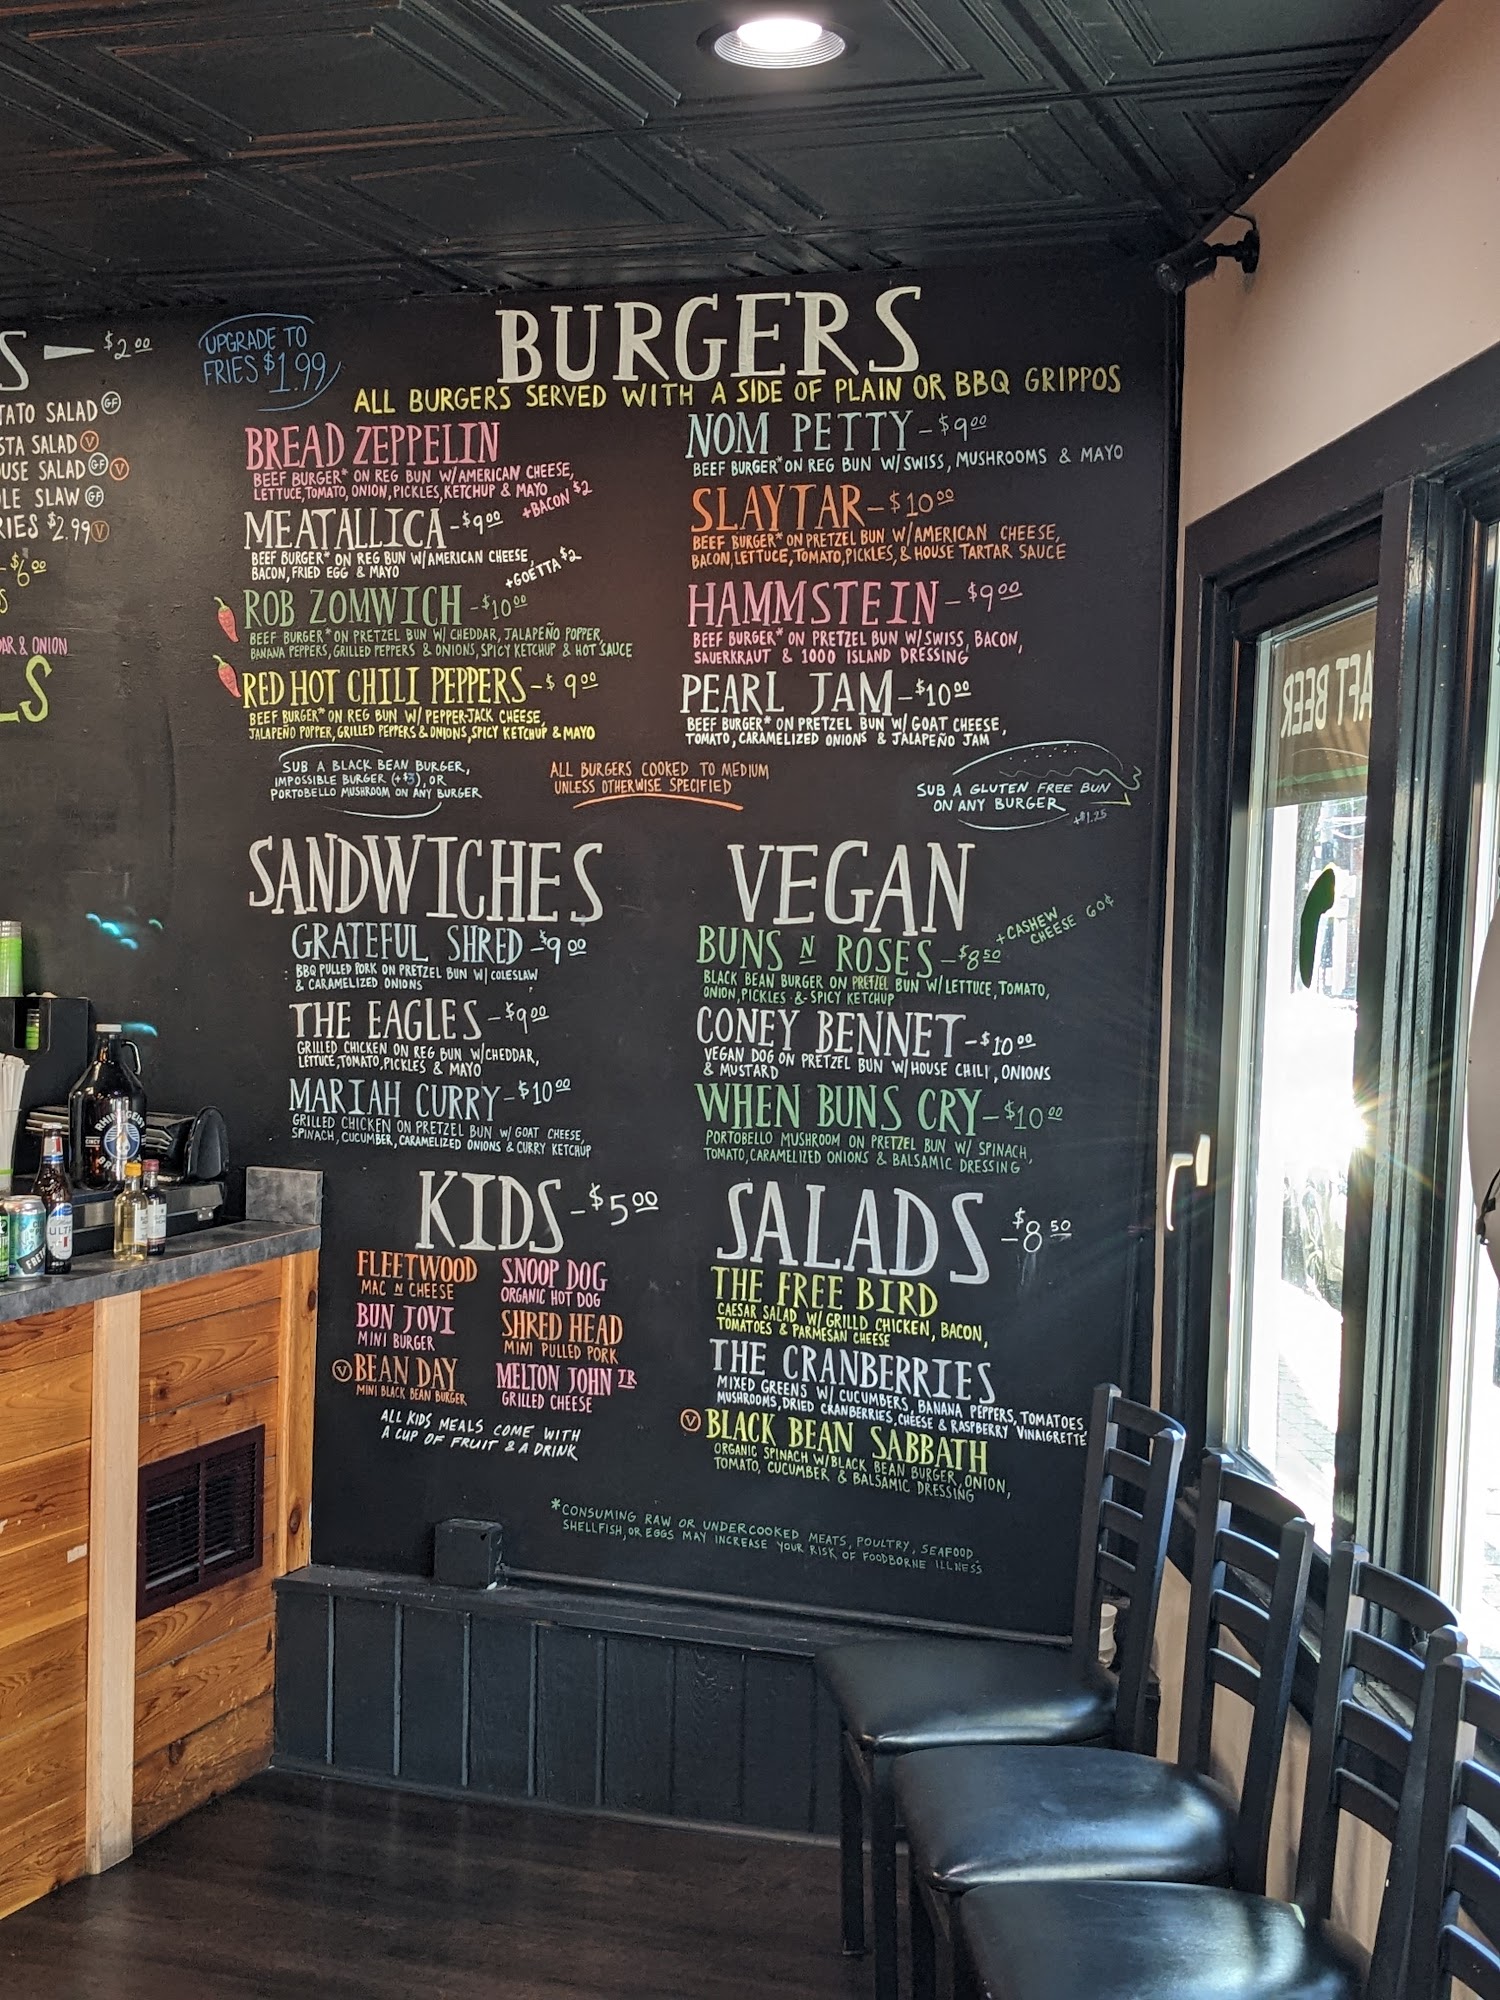 S — $2.00
TATO SALAD GF
STA SALAD V
OUSE SALAD GF V
OLE SLAW GF
RIES $2.99 V
- $6.00
S
DAR & ONION
LS
UPGRADE TO
FRIES $1.99
BURGERS
ALL BURGERS SERVED WITH A SIDE OF PLAIN OR BBQ GRIPPOS
BREAD ZEPPELIN
BEEF BURGER* ON REG BUN W/AMERICAN CHEESE,
LETTUCE, TOMATO, ONION, PICKLES, KETCHUP & MAYO
+BACON $2
MEATALLICA - $9.00
BEEF BURGER* ON REG BUN W/AMERICAN CHEESE,
BACON, FRIED EGG & MAYO
+GOETTA $2
ROB ZOMWICH - $10.00
BEEF BURGER* ON PRETZEL BUN W/ CHEDDAR, JALAPEÑO POPPER,
BANANA PEPPERS, GRILLED PEPPERS & ONIONS, SPICY KETCHUP & HOT SAUCE
RED HOT CHILI PEPPERS - $9.00
BEEF BURGER* ON REG BUN W/ PEPPER-JACK CHEESE,
JALAPEÑO POPPER, GRILLED PEPPERS & ONIONS, SPICY KETCHUP & MAYO
NOM PETTY - $9.00
BEEF BURGER* ON REG BUN W/SWISS, MUSHROOMS & MAYO
SLAYTAR - $10.00
BEEF BURGER* ON PRETZEL BUN W/AMERICAN CHEESE,
BACON, LETTUCE, TOMATO, PICKLES, & HOUSE TARTAR SAUCE
HAMMSTEIN - $9.00
BEEF BURGER* ON PRETZEL BUN W/SWISS, BACON,
SAUERKRAUT & 1000 ISLAND DRESSING
PEARL JAM - $10.00
BEEF BURGER* ON PRETZEL BUN W/ GOAT CHEESE,
TOMATO, CARAMELIZED ONIONS & JALAPEÑO JAM
SUB A BLACK BEAN BURGER,
IMPOSSIBLE BURGER (+$3), OR
PORTOBELLO MUSHROOM ON ANY BURGER
ALL BURGERS COOKED TO MEDIUM
UNLESS OTHERWISE SPECIFIED
SUB A GLUTEN FREE BUN
ON ANY BURGER
+$1.25
SANDWICHES
GRATEFUL SHRED - $9.00
BBQ PULLED PORK ON PRETZEL BUN W/ COLESLAW
& CARAMELIZED ONIONS
THE EAGLES - $9.00
GRILLED CHICKEN ON REG BUN W/CHEDDAR,
LETTUCE, TOMATO, PICKLES & MAYO
MARIAH CURRY - $10.00
GRILLED CHICKEN ON PRETZEL BUN W/ GOAT CHEESE,
SPINACH, CUCUMBER, CARAMELIZED ONIONS & CURRY KETCHUP
VEGAN
BUNS N ROSES - $8.50
+CASHEW
CHEESE 60¢
BLACK BEAN BURGER ON PRETZEL BUN W/LETTUCE, TOMATO,
ONION, PICKLES & SPICY KETCHUP
CONEY BENNET - $10.00
VEGAN DOG ON PRETZEL BUN W/HOUSE CHILI, ONIONS
& MUSTARD
WHEN BUNS CRY - $10.00
PORTOBELLO MUSHROOM ON PRETZEL BUN W/ SPINACH,
TOMATO, CARAMELIZED ONIONS & BALSAMIC DRESSING
KIDS - $5.00
FLEETWOOD
MAC N CHEESE
BUN JOVI
MINI BURGER
V BEAN DAY
MINI BLACK BEAN BURGER
SNOOP DOG
ORGANIC HOT DOG
SHRED HEAD
MINI PULLED PORK
MELTON JOHN JR
GRILLED CHEESE
ALL KIDS MEALS COME WITH
A CUP OF FRUIT & A DRINK
SALADS - $8.50
THE FREE BIRD
CAESAR SALAD W/ GRILLD CHICKEN, BACON,
TOMATOES & PARMESAN CHEESE
THE CRANBERRIES
MIXED GREENS W/ CUCUMBERS, BANANA PEPPERS, TOMATOES
MUSHROOMS, DRIED CRANBERRIES, CHEESE & RASPBERRY VINAIGRETTE
V BLACK BEAN SABBATH
ORGANIC SPINACH W/BLACK BEAN BURGER, ONION,
TOMATO, CUCUMBER & BALSAMIC DRESSING
*CONSUMING RAW OR UNDERCOOKED MEATS, POULTRY, SEAFOOD
SHELLFISH, OR EGGS MAY INCREASE YOUR RISK OF FOODBORNE ILLNESS
AFT BEER
RHINEGEIST
ULTRA